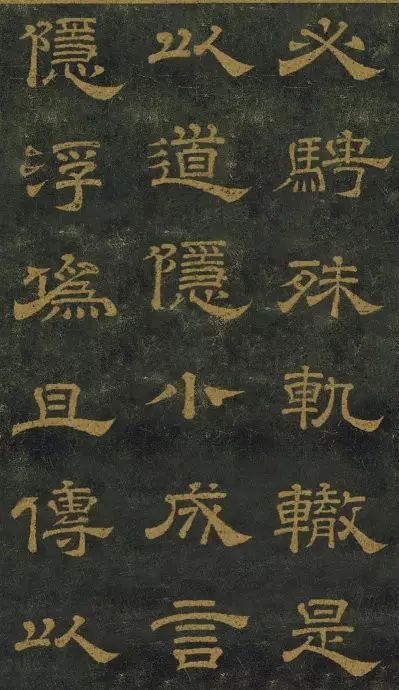 必騁殊軌轍是
以道隱小成言
隱浮僞且傳以